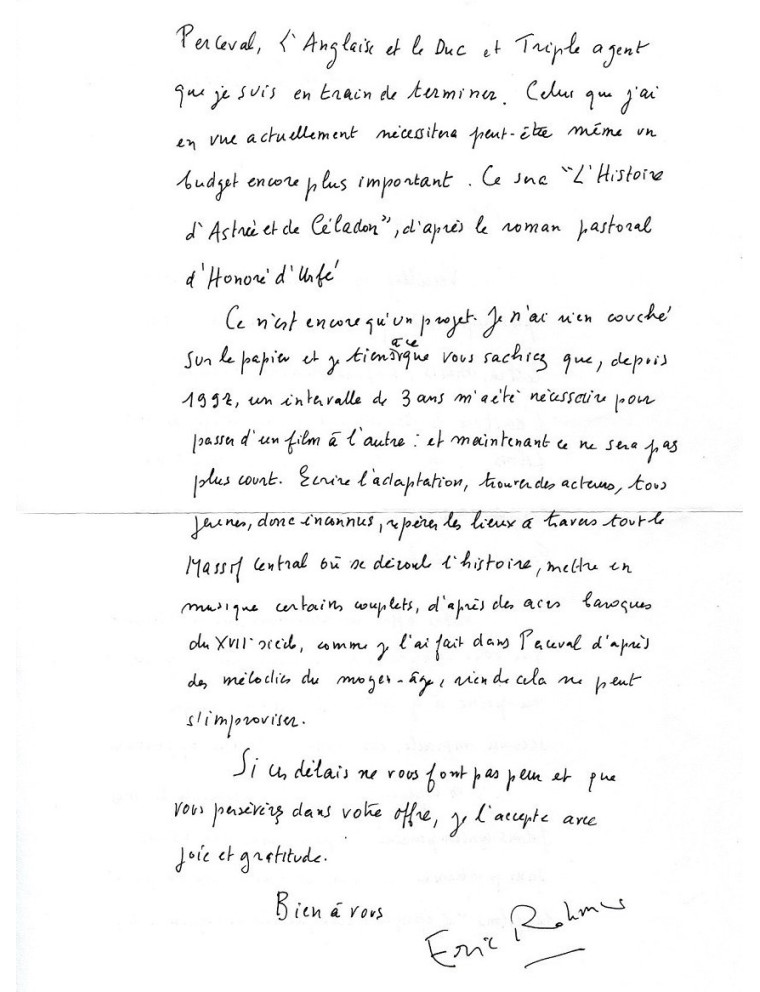 Perceval, L'Anglaise et le Duc et Triple agent
que je suis en train de terminer. Celui que j'ai
en vue actuellement nécessitera peut-être même un
budget encore plus important. Ce sera "L'Histoire
d'Astrée et de Céladon", d'après le roman pastoral
d'Honoré d'Urfé
Ce n'est encore qu'un projet. Je n'ai rien couché
sur le papier et je tiens à ce que vous sachiez que, depuis
1992, un intervalle de 3 ans m'a été nécessaire pour
passer d'un film à l'autre : et maintenant ce ne sera pas
plus court. Ecrire l'adaptation, trouver des acteurs, tous
jeunes, donc inconnus, repérer les lieux à travers tout le
Massif Central où se déroule l'histoire, mettre en
musique certains couplets, d'après des airs baroques
du XVIIe siècle, comme je l'ai fait dans Perceval d'après
des mélodies du moyen-âge, rien de cela ne peut
s'improviser.
Si ces délais ne vous font pas peur et que
vous persévériez dans votre offre, je l'accepte avec
joie et gratitude.
Bien à vous
Eric Rohmer